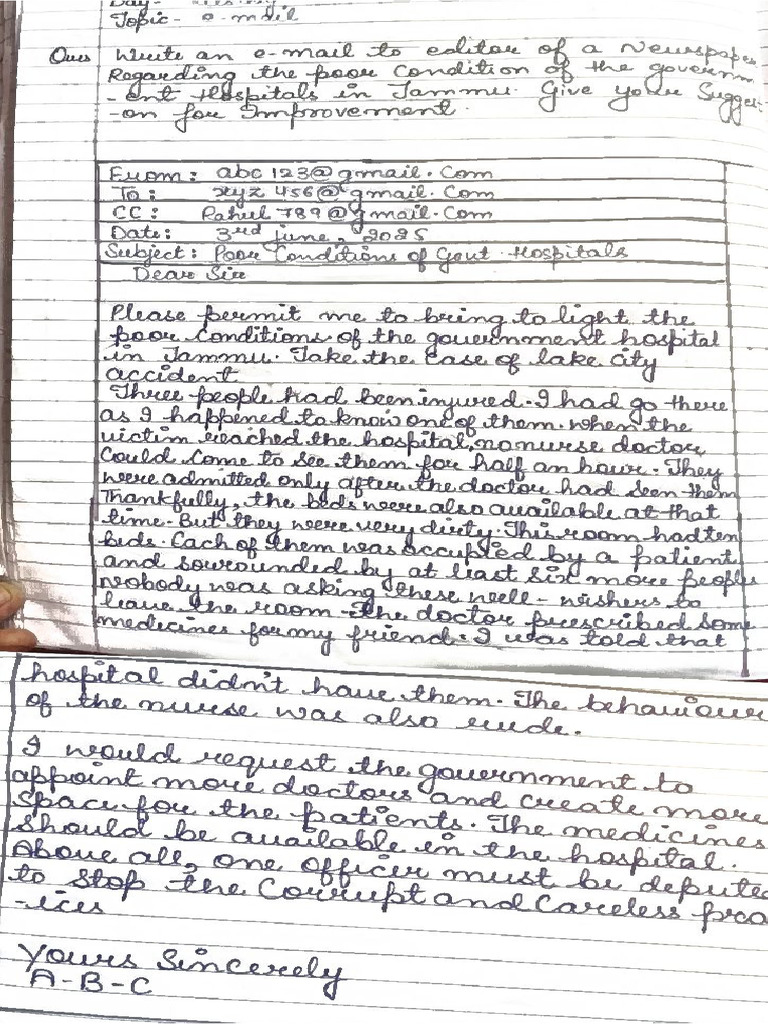 Topic- e-mail
Ques Write an e-mail to editor of a Newspaper
Regarding the poor Condition of the governm
-ent Hospitals in Jammu. Give your Suggest-
-on for Improvement.
From: abc123@gmail.Com
To: xyz456@gmail.Com
CC: Rahul789@gmail.Com
Date: 3rd june, 2025
Subject: Poor Conditions of Govt. Hospitals
Dear Sir
Please permit me to bring to light the
poor conditions of the government hospital
in Jammu. Take the Case of lake city
accident
Three people had been injured. I had go there
as I happened to know one of them. when the
victim reached the hospital, no nurse doctor
Could Come to see them for half an hour. They
were admitted only after the doctor had seen them
Thankfully, the beds were also available at that
time. But they were very dirty. This room had ten
beds. Each of them was occupied by a patient
and sorrounded by at least six more people
Nobody was asking these well-wishers to
leave the room - The doctor prescribed some
medicines for my friend. I was told that
hospital didn't have them. The behaviour
of the nurse was also rude.
I would request the government to
appoint more doctors and create more
space for the patients. The medicines
should be available in the hospital.
Above all, one officer must be deputed
to stop the Corrupt and Careless pra
-ices
Yours Sincerely
A-B-C